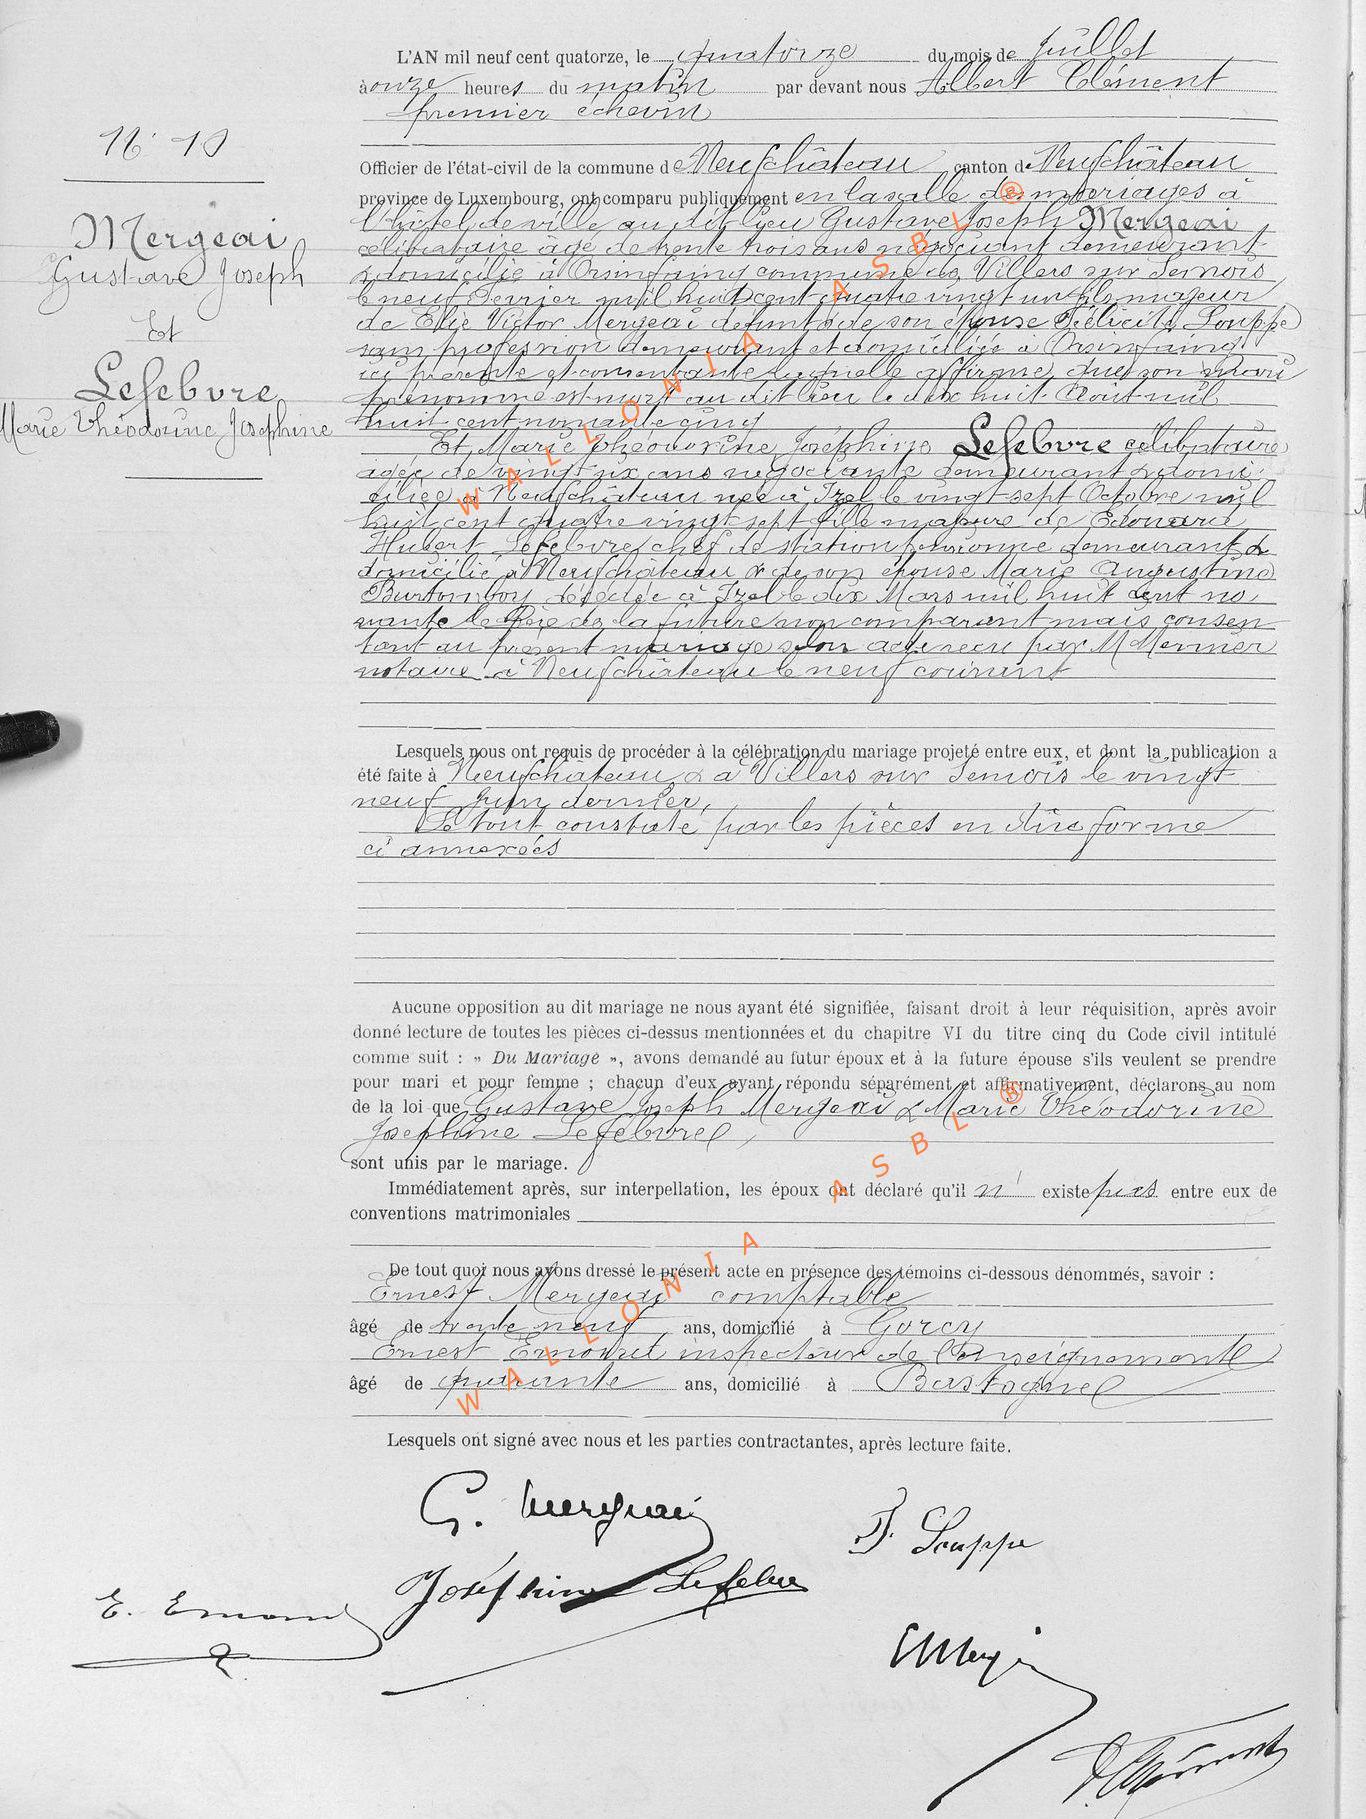 L'AN mil neuf cent quatorze, le quatorze du mois de juillet
à onze heures du matin par devant nous Albert Clément
premier échevin
N° 10
Mergeai
Gustave Joseph
Et
Lefebvre
Marie Théodorine Joséphine
Officier de l'état-civil de la commune de Neufchâteau canton de Neufchâteau
province de Luxembourg, ont comparu publiquement en la salle de mariages à
l'hôtel de ville au dit lieu Gustave Joseph Mergeai
célibataire âgé de trente trois ans négociant demeurant
& domicilié à Orsinfaing commune de Villers sur Semois
le neuf Fevrier mil huit cent quatre vingt un fils majeur
de Elie Victor Mergeai défunt & de son épouse Félicité Souppe
sans profession demeurant et domiciliée à Orsinfaing
ici présente et consentante laquelle affirme que son mari
prénommé est mort au dit lieu le dix huit Août mil
huit cent nonante cinq
Et Marie Théodorine Joséphine Lefebvre célibataire
âgée de vingt six ans négociante demeurant & domi
ciliée à Neufchâteau née à Izel le vingt sept Octobre mil
huit cent quatre vingt sept fille majeure de Edouard
Hubert Lefebvre chef de station pensionné demeurant &
domicilié à Neufchâteau & de son épouse Marie Augustine
Burtomboy décédée à Izel le dix Mars mil huit cent no
nante le Père de la future non comparant mais consen
tant au présent mariage selon acte reçu par M Mernier
notaire à Neufchâteau le neuf courant
Lesquels nous ont requis de procéder à la célébration du mariage projeté entre eux, et dont la publication a
été faite à Neufchâteau & à Villers sur Semois le vingt
neuf Juin dernier,
Le tout constaté par les pièces en dûe forme
ci annexées
Aucune opposition au dit mariage ne nous ayant été signifiée, faisant droit à leur réquisition, après avoir
donné lecture de toutes les pièces ci-dessus mentionnées et du chapitre VI du titre cinq du Code civil intitulé
comme suit : » Du Mariage », avons demandé au futur époux et à la future épouse s'ils veulent se prendre
pour mari et pour femme ; chacun d'eux ayant répondu séparément et affirmativement, déclarons au nom
de la loi que Gustave Joseph Mergeai & Marie Théodorine
Joséphine Lefebvre,
sont unis par le mariage.
Immédiatement après, sur interpellation, les époux ont déclaré qu'il n' existe pas entre eux de
conventions matrimoniales
De tout quoi nous avons dressé le présent acte en présence des témoins ci-dessous dénommés, savoir :
Ernest Mergeai comptable
âgé de trente neuf ans, domicilié à Gorcy
Ernest Emond inspecteur de l'enseignement
âgé de quarante ans, domicilié à Bastogne
Lesquels ont signé avec nous et les parties contractantes, après lecture faite.
G. Mergeai
F. Souppe
Joséphine Lefebvre
E. Emond
WALLONIA ASBL ®
WALLONIA ASBL ®